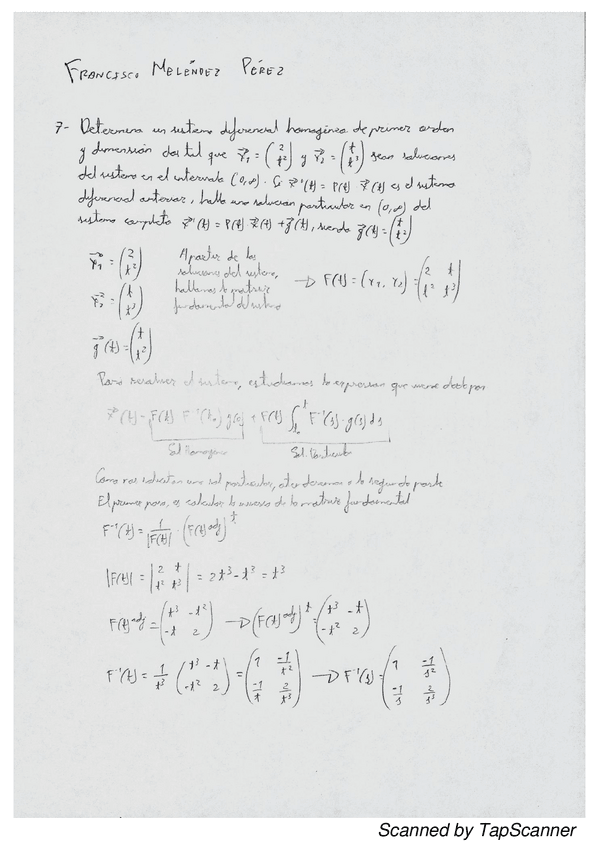 FRANCISCO MELÉNDEZ PÉREZ
7- Determina un sistema diferencial homogéneo de primer orden
y dimensión dos tal que γ⃗₁ = (2 / t²) y γ⃗₂ = (t / t³) sean soluciones
del sistema en el intervalo (0,∞). Si x⃗'(t) = P(t) x⃗(t) es el sistema
diferencial anterior, halla una solución particular en (0,∞) del
sistema completo x⃗'(t) = P(t) x⃗(t) + g⃗(t), siendo g⃗(t) = (t / t²)
γ⃗₁ = (2 / t²)
γ⃗₂ = (t / t³)
g⃗(t) = (t / t²)
A partir de las
soluciones del sistema,
hallamos la matriz
fundamental del sistema
→ F(t) = (γ₁, γ₂) = (2 t / t² t³)
Para resolver el sistema, estudiamos la expresión que viene dada por
x⃗(t) = F(t) F⁻¹(t₀) g(s) + F(t) ∫ₜ₀ᵗ F⁻¹(s) · g(s) ds
Sol. Homogénea Sol. Particular
Como nos solicitan una sol particular, atenderemos a la segunda parte
El primer paso, es calcular la inversa de la matriz fundamental
F⁻¹(t) = 1/|F(t)| · (F(t)^adj)^t
|F(t)| = |2 t / t² t³| = 2t³ - t³ = t³
F(t)^adj = (t³ -t² / -t 2) → (F(t)^adj)^t = (t³ -t / -t² 2)
F⁻¹(t) = 1/t³ (t³ -t / -t² 2) = (1 -1/t² / -1/t 2/t³) → F⁻¹(s) = (1 -1/s² / -1/s 2/s³)
Scanned by TapScanner